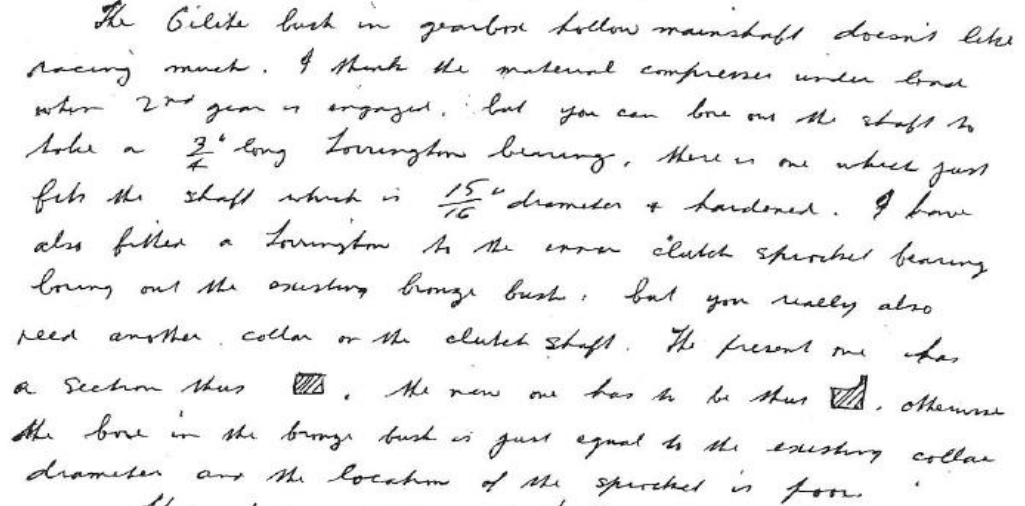 The Oilite bush in gearbox hollow mainshaft doesn't like
racing much. I think the material compresses under load
when 2nd gear is engaged, but you can bore out the shaft to
take a 3/4" long Torrington bearing, there is one which just
fits the shaft which is 15/16" diameter + hardened. I have
also fitted a Torrington to the inner clutch sprocket bearing
boring out the existing bronze bush, but you really also
need another collar on the clutch shaft. The present one has
a section thus , the new one has to be thus , otherwise
the bore in the bronze bush is just equal to the existing collar
diameter and the location of the sprocket is poor.